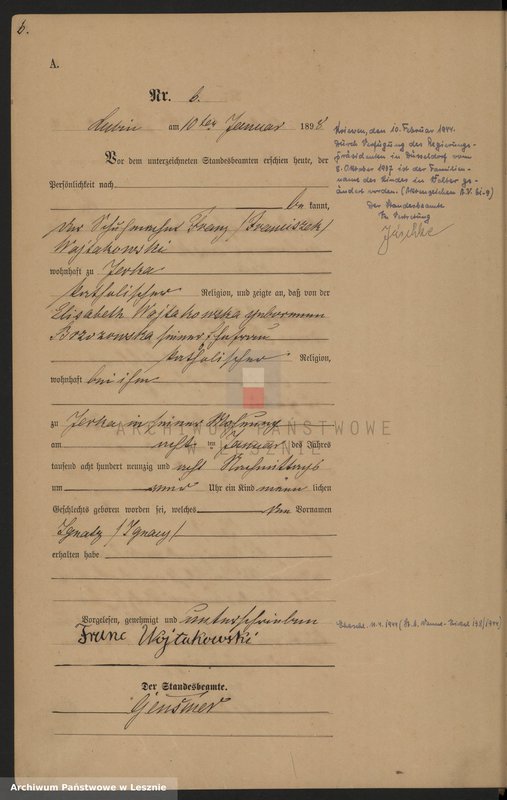 6.
A.
Nr. 6.
Lubin am 10ten Januar 1898.
Vor dem unterzeichneten Standesbeamten erschien heute, der
Persönlichkeit nach
bekannt,
der Schuhmacher Franz /Franciszek/
Wojtakowski
wohnhaft zu Jerka
katholischer Religion, und zeigte an, daß von der
Elisabeth Wojtakowska geborenen
Brzozowska seiner Ehefrau
katholischer Religion,
wohnhaft bei ihm
zu Jerka in seiner Wohnung
am acht ten Januar des Jahres
tausend acht hundert neunzig und acht Nachmittags
um Uhr ein Kind männlichen
Geschlechts geboren worden sei, welches den Vornamen
Ignatz /Ignacy/
erhalten habe
Vorgelesen, genehmigt und unterschrieben
Franc Wojtakowski
Der Standesbeamte.
Kriewen, den 10. Februar 1944.
Durch Verfügung des Regierungs-
präsidenten in Düsseldorf vom
8. Oktober 1937 ist der Familien-
name des Kindes in Walter ge-
ändert worden.
Der Standesbeamte
In Vertretung
Jäschke
ARCHIWUM PAŃSTWOWE
W LESZNIE
Archiwum Państwowe w Lesznie